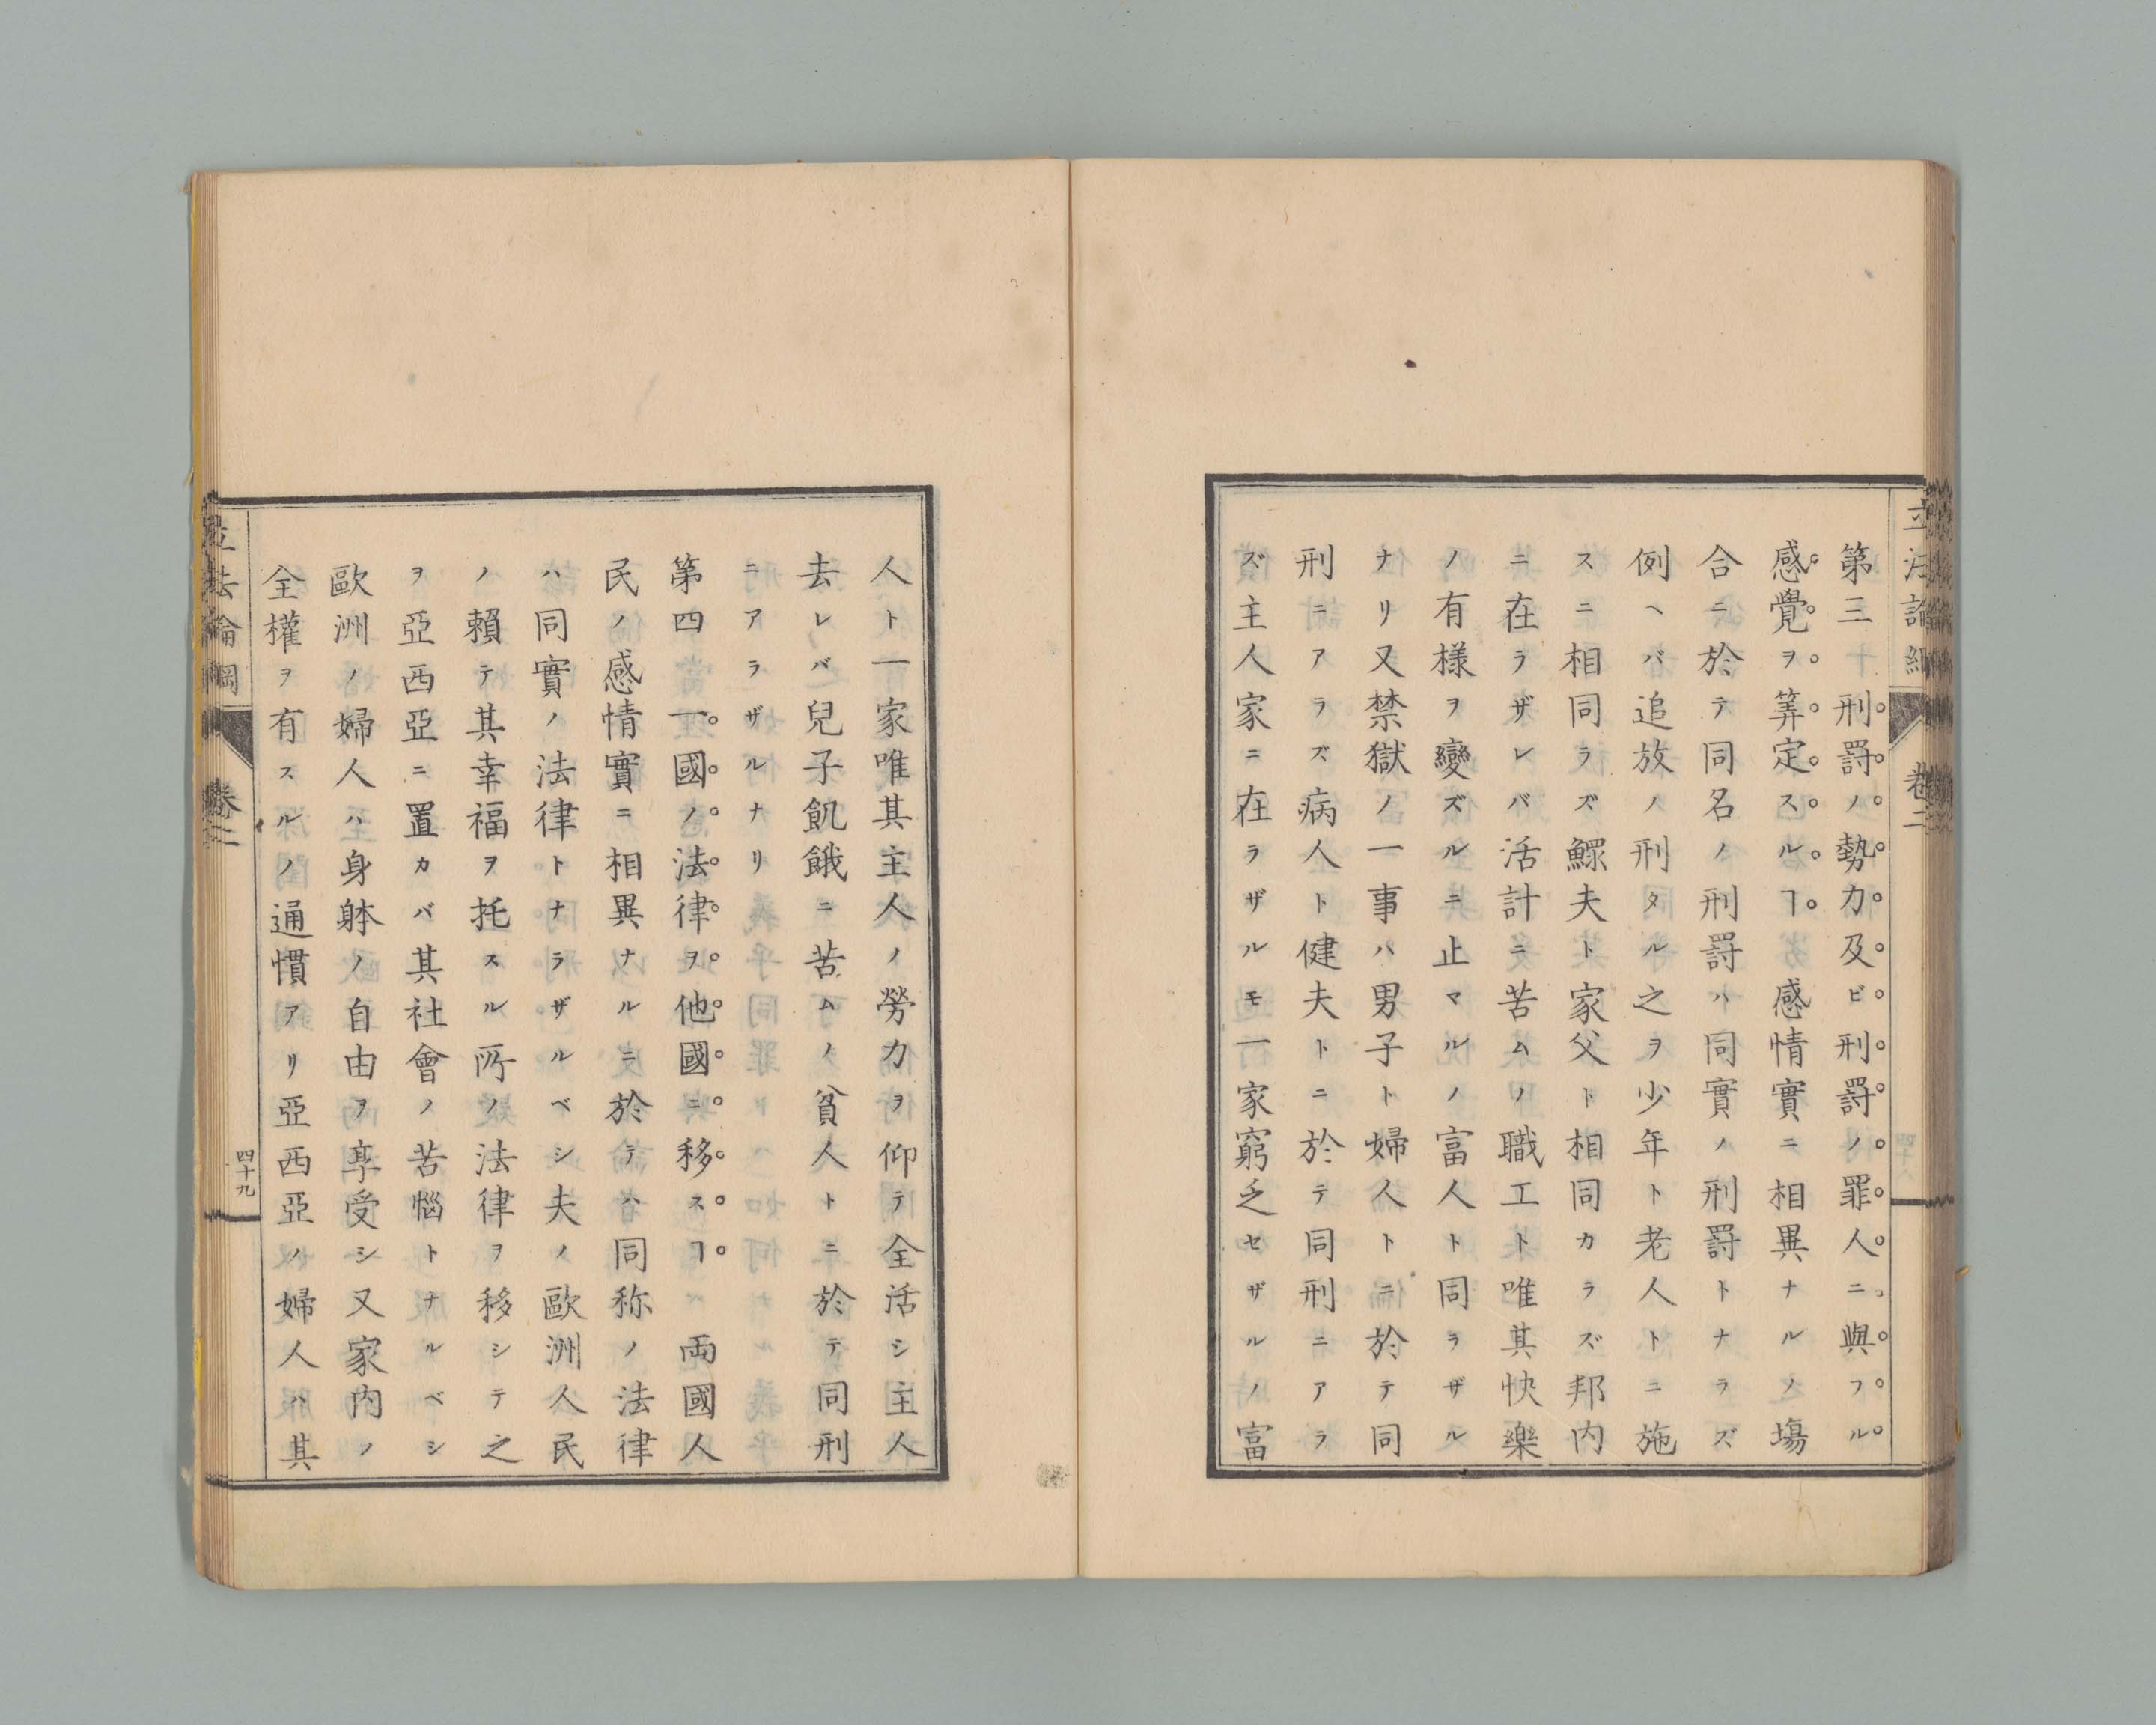 第三刑罰ノ勢力及ビ刑罰ノ罪人ニ與フル
感覺ヲ筭定スルヿ　感情實ニ相異ナルノ塲
合ニ於テ同名ノ刑罰ハ同實ノ刑罰トナラズ
例ヘバ追放ノ刑タル之ヲ少年ト老人トニ施
スニ相同ラズ鰥夫ト家父ト相同カラズ邦内
ニ在ラザレバ活計ニ苦ムノ職工ト唯其快樂
ノ有様ヲ變ズルニ止マルノ富人ト同ラザル
ナリ又禁獄ノ一事ハ男子ト婦人トニ於テ同
刑ニアラズ病人ト健夫トニ於テ同刑ニアラ
ズ主人家ニ在ラザルモ一家窮乏セザルノ富
人ト一家唯其主人ノ勞力ヲ仰テ全活シ主人
去レバ兒子飢餓ニ苦ムノ貧人トニ於テ同刑
ニアラザルナリ
第四一國ノ法律ヲ他國ニ移スヿ　両國人
民ノ感情實ニ相異ナルニ於テハ同称ノ法律
ハ同實ノ法律トナラザルベシ夫ノ歐洲人民
ノ賴テ其幸福ヲ托スル所ノ法律ヲ移シテ之
ヲ亞西亞ニ置カバ其社會ノ苦惱トナルベシ
歐洲ノ婦人ハ身躰ノ自由ヲ享受シ又家内ノ
全權ヲ有スルノ通慣アリ亞西亞ノ婦人ハ其
立法論綱
卷二
四十九